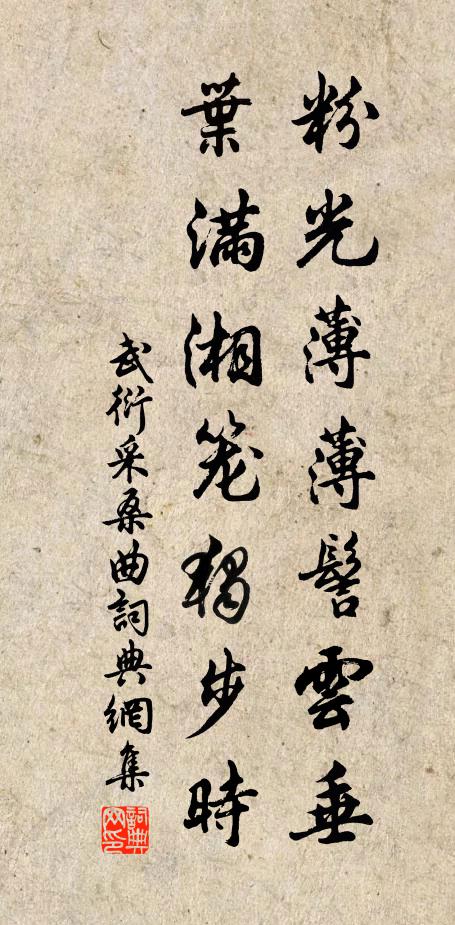 粉光薄薄髻雲垂
葉滿湘笼獨步時
武衍采桑曲詞典網集
詞典网印